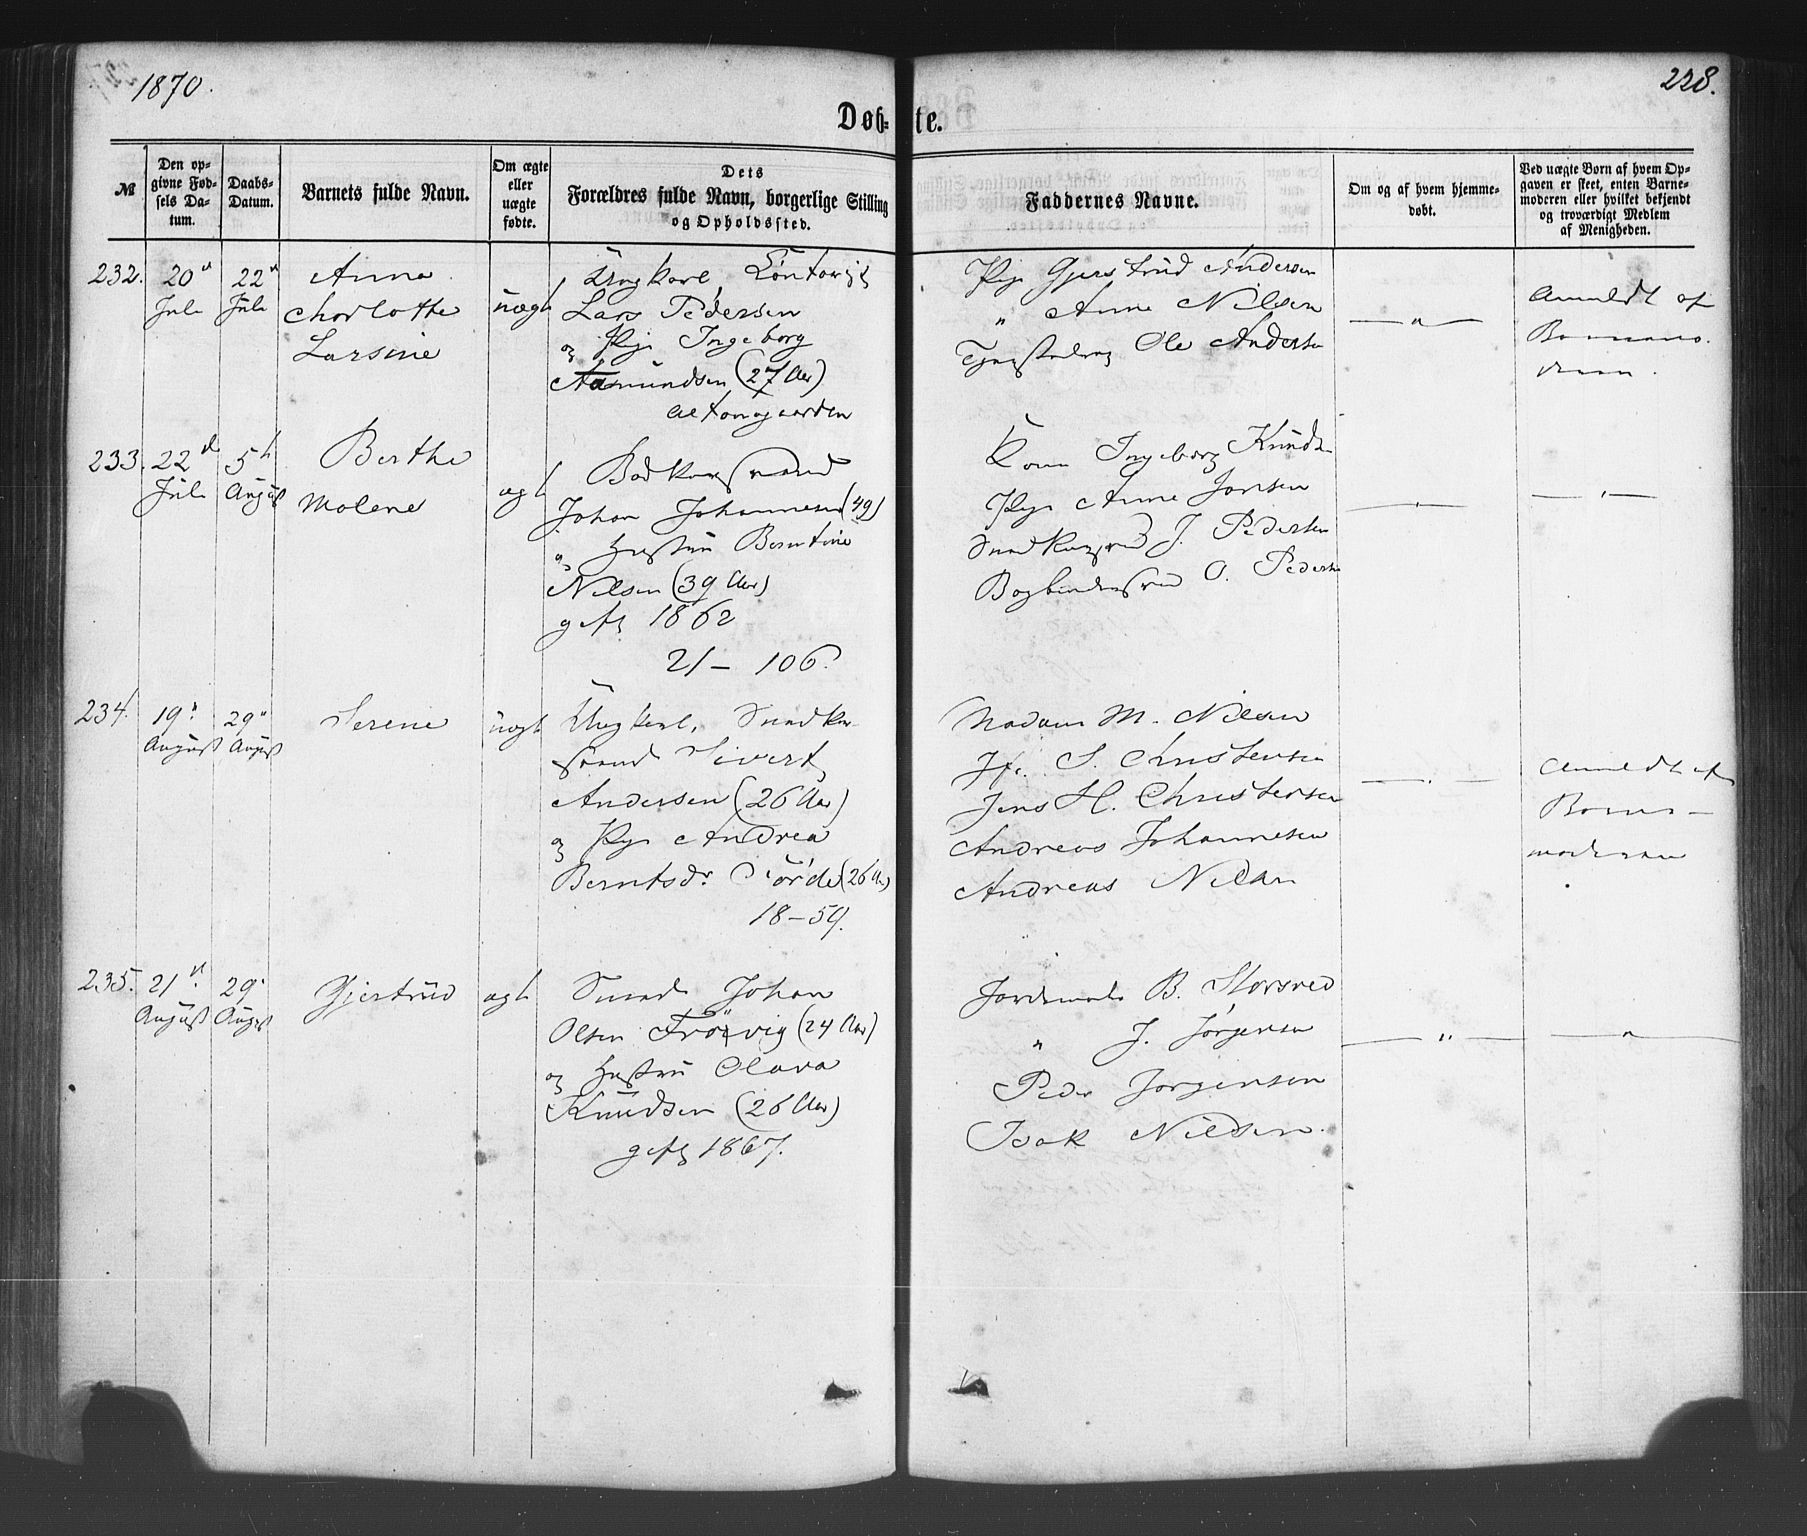 1870.
228.
Døb-te.
№
Den opgivne Fødsels Datum.
Daabs-Datum.
Barnets fulde Navn.
Om ægte eller uægte fødte.
Dets Forældres fulde Navn, borgerlige Stilling og Opholdssted.
Faddernes Navne.
Om og af hvem hjemmedøbt.
Ved uægte Børn af hvem Opgaven er skeet, enten Barnemoderen eller hvilket bekjendt og troværdigt Medlem af Menigheden.
232.
20
Juli
22
Juli
Anna
Charlotte
Larsine
uægt
Ungkarl,
Lars Pedersen
og Pige Ingeborg
Aamundsen (27 Aar)
Pige Gjertrud Andersen
" Anne Nilsen
Ole Andersen
"
Anmeldt af
Barnemo-
deren.
233.
22
Juli
5
August
Berthe
Malene
ægt
Johan Johannesen (49)
" Hustru Berntine
Nilsen (39 Aar)
gift 1862
21 – 106.
Kone Ingeborg Knuds
Pige Anne Jansen
J. Pedersen
O. Pedersen
234.
19
August
29
August
Serene
uægt
Ungkarl, Snedker-
svend Sivert
Andersen (26 Aar)
og Pige Andrea
Berntsdr. Førde (26 Aar)
18 – 59.
Madam M. Nilsen
Jfr. S. Christensen
Jens H. Christensen
Andreas Johannesen
Andreas Nilsen
Anmeldt af
Barne-
moderen
235.
21
August
29
August
Gjertrud
ægt
Smed Johan
Olsen Frøvig (24 Aar)
og Hustru Olava
Knudsen (26 Aar)
gift 1867.
Jordemode B. Storsved
" J. Jørgensen
Peder Jørgensen
Isak Nilsen.
"